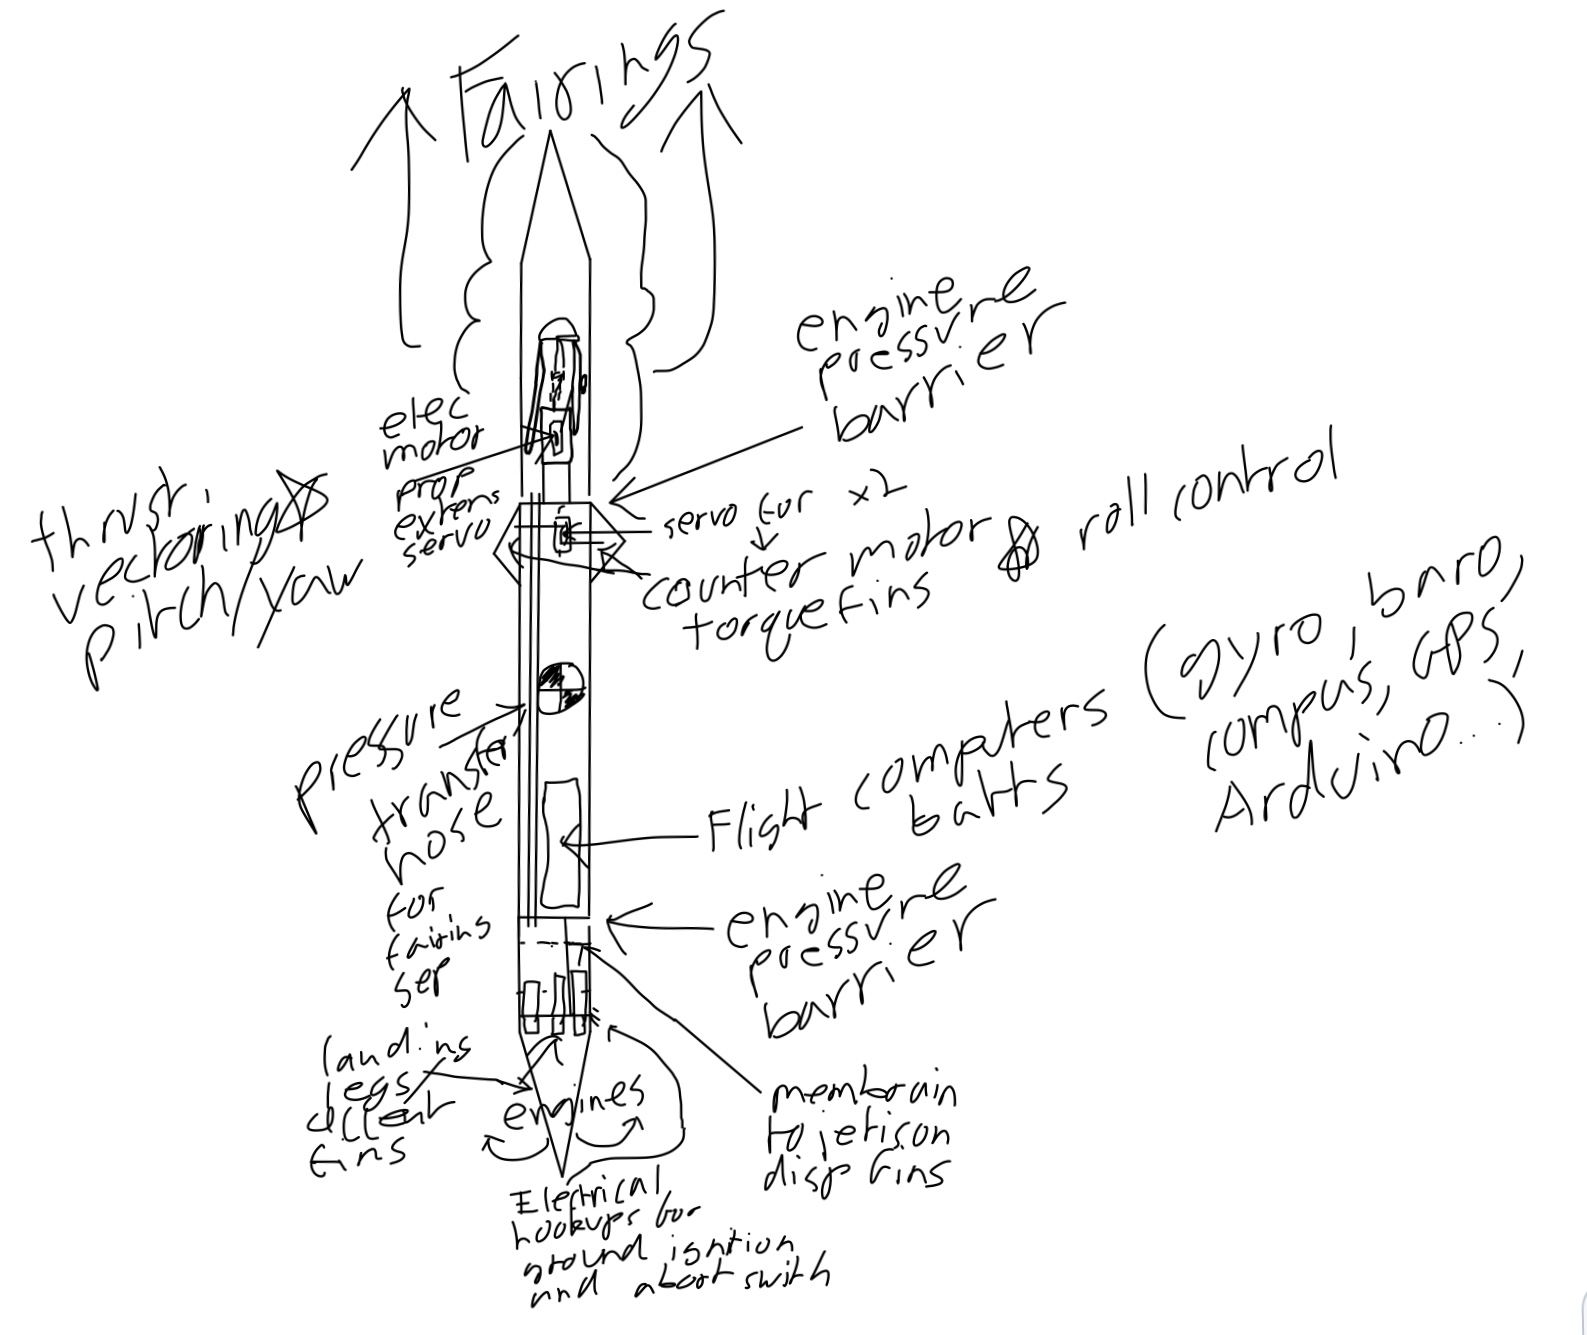 Fairings
engine
pressure
barrier
elec
motor
prop
extens
servo
thrust
vectoring
pitch/yaw
servo for x2
counter motor & roll control
torque fins
pressure
transfer
hose
for
fairing
sep
(gyro, baro,
compus, GPS,
Arduino...)
Flight computers
batts
engine
pressure
barrier
landing
legs
fins
engines
membrain
to jetison
disp fins
Electrical
hookups for
ground ignition
and abort swith